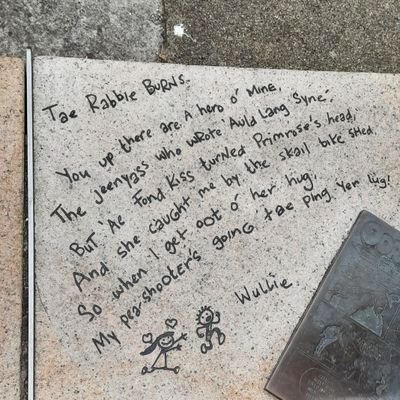 Tae Rabbie BURNS.
You up there are A hero o' Mine,
The jeenyass who wrote 'Auld Lang Syne'.
BUT 'Ae Fond Kiss turned Primrose's head,
And she caught me by the skail bike shed.
So when I get oot o' her hug,
My pea-shooter's going tae ping yer lug!
Wullie.